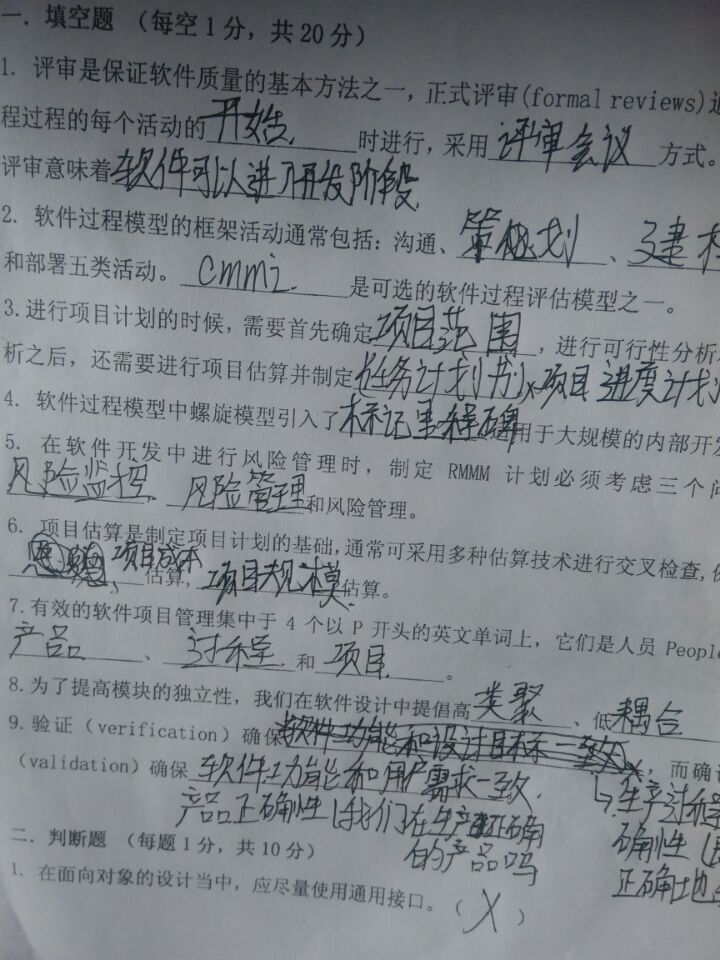 一. 填空题 (每空1分, 共20分)
1. 评审是保证软件质量的基本方法之一, 正式评审(formal reviews)通
程过程的每个活动的 开始 时进行, 采用 评审会议 方式。
评审意味着 软件可以进入开发阶段
2. 软件过程模型的框架活动通常包括: 沟通、 策划 、 建模
和部署五类活动。 cmmi 是可选的软件过程评估模型之一。
3.进行项目计划的时候, 需要首先确定 项目范围 , 进行可行性分析
析之后, 还需要进行项目估算并制定 任务计划 项目进度计划
4. 软件过程模型中螺旋模型引入了 标记里程碑 用于大规模的内部开发
5. 在软件开发中进行风险管理时, 制定 RMMM 计划必须考虑三个问
风险监控 风险管理 和风险管理。
6. 项目估算是制定项目计划的基础, 通常可采用多种估算技术进行交叉检查,
项目成本 估算, 项目规模 估算。
7.有效的软件项目管理集中于 4 个以 P 开头的英文单词上, 它们是人员 People
产品 、 过程 和 项目 。
8.为了提高模块的独立性, 我们在软件设计中提倡高 类聚 、低 耦合
9.验证 (verification) 确保 软件功能和设计目标一致 , 而确认
(validation) 确保 软件功能和用户需求一致 生产过程
产品正确性 (我们在生产正确 确性
的产品吗 正确地
二. 判断题 (每题1分, 共10分)
1. 在面向对象的设计当中, 应尽量使用通用接口。( X )